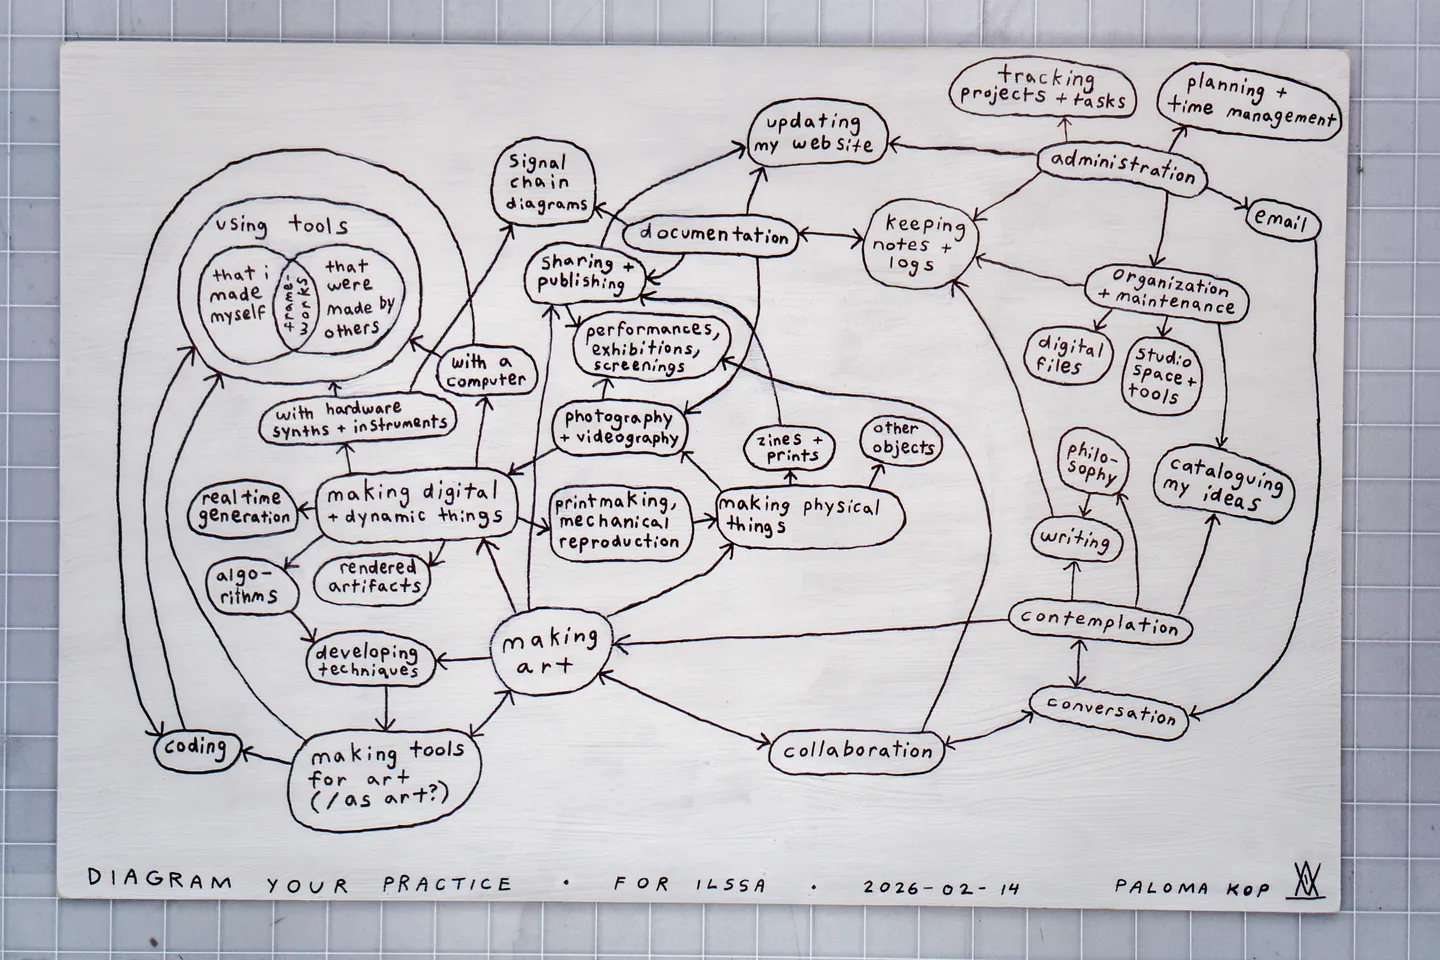 tracking
projects + tasks
planning +
time management
updating
my website
administration
signal
chain
diagrams
email
using tools
documentation
keeping
notes +
logs
that i
made
myself
frame-
works
that
were
made by
others
sharing +
publishing
organization
+ maintenance
performances,
exhibitions,
screenings
digital
files
studio
space +
tools
with a
computer
with hardware
synths + instruments
photography
+ videography
zines +
prints
other
objects
philo-
sophy
cataloguing
my ideas
real time
generation
making digital
+ dynamic things
printmaking,
mechanical
reproduction
making physical
things
writing
algo-
rithms
rendered
artifacts
contemplation
developing
techniques
making
art
conversation
coding
making tools
for art
(/as art?)
collaboration
DIAGRAM YOUR PRACTICE · FOR ILSSA · 2026-02-14 PALOMA KOP